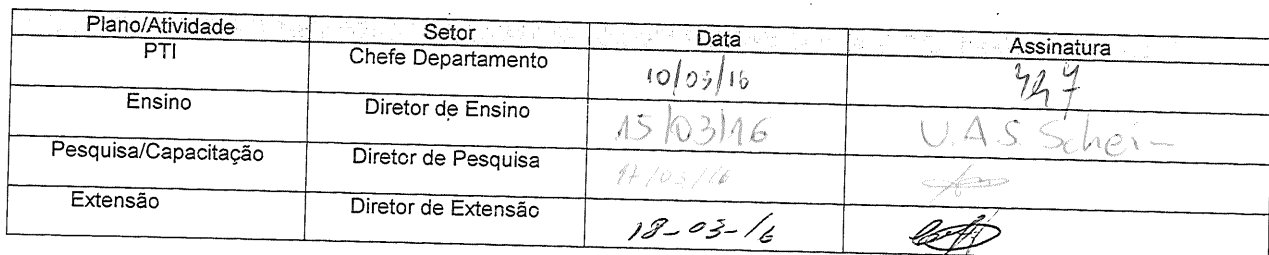 Plano/Atividade Setor Data Assinatura
PTI Chefe Departamento 10/03/16
Ensino Diretor de Ensino 15/03/16 U.A.S. Schei-
Pesquisa/Capacitação Diretor de Pesquisa 17/03/16
Extensão Diretor de Extensão 18-03-16